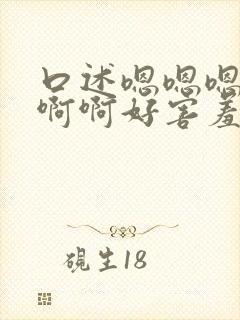 口述嗯嗯嗯
啊啊好害羞
砚生18